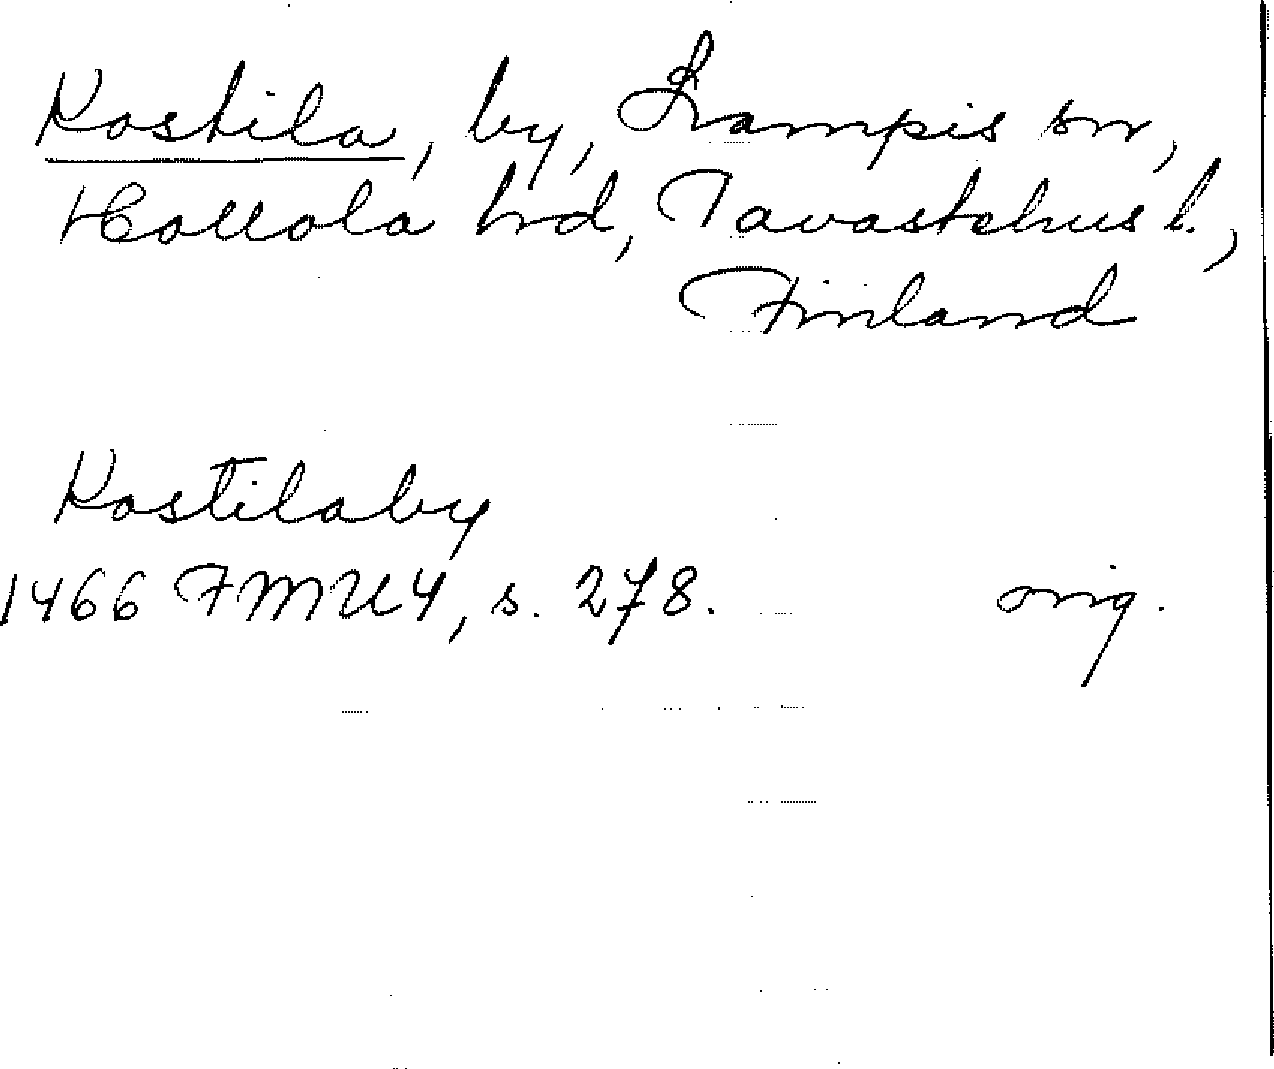 Kostila, by, Lampis sn,
Hollola hrd, Tavastehus l.,
Finland
Kostilaby
1466 FMU 4, s. 278. orig.